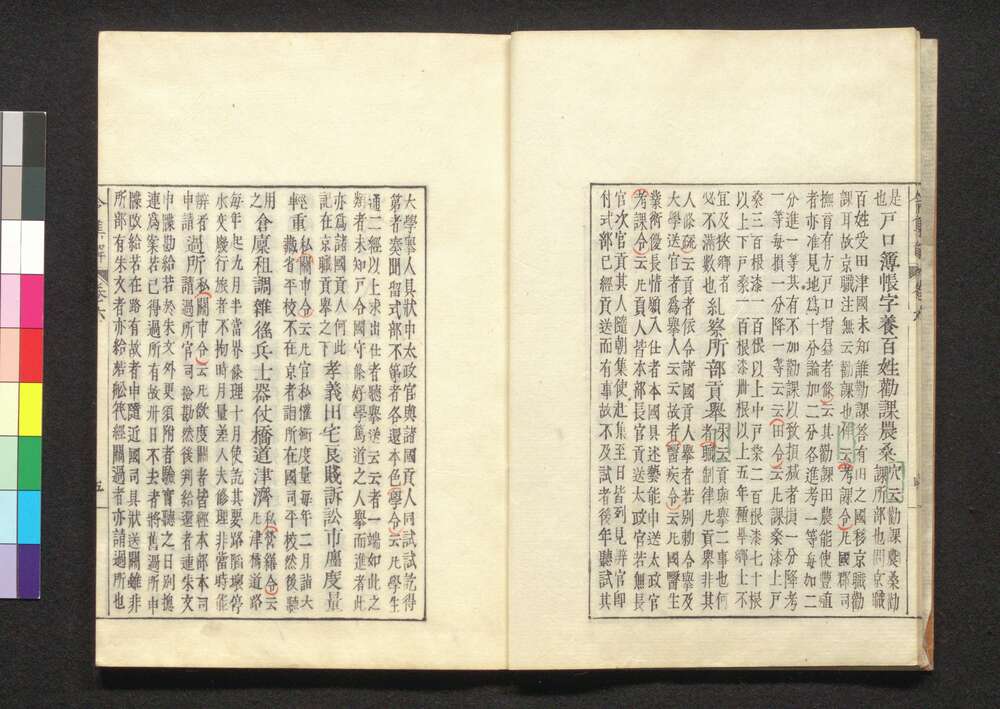 是
也
戸口簿帳字養百姓勸課農桑
穴云勸課農桑勸
課所部也問京職
百姓受田津國未知誰勸課答有田之國移京職勸
課耳故京職注無云勸課也祖云考課令云凡國郡司
撫育有方戸口增益者條云其勸課田農能使豐殖
者亦准見地爲十分論加二分各進考一等每加二
分進一等其有不加勸課以致損減者損一分降考
一等每損一分降一等云云田令云凡課桑漆上戸
桑三百根漆一百根以上中戸桑二百根漆七十根
以上下戸桑一百根漆卌根以上五年種畢鄕土不
宜及狹鄕者
必不滿數也
糺察所部貢擧
朱云貢與擧二事也何
者職制律凡貢擧非其
人條疏云貢者依令諸國貢人擧者若別勅令擧及
大學送官者爲擧人云云故者醫疾令云凡國醫生
業術優長情願入仕者本國具述藝能申送太政官
考課令云凡貢人皆本部長官貢送太政官若無長
官次官貢其人隨朝集使赴集至日皆列見辨官即
付式部已經貢送而有事故不及試者後年聽試其
大學擧人具狀申太政官與諸國貢人同試試訖得
第者奏聞留式部不第者各還本色學令云凡學生
通二經以上求出仕者聽擧送云云者一端如此之
類者未知戸令國守條好學篤道之人擧而進者此
亦爲諸國貢人何此
記在京職貢擧之下
孝義田宅良賤訴訟市廛度量
輕重
私關市令云凡官私權衡度量每年二月詣大
藏省平校不在京者詣所在國司平校然後聽
用
之
倉廩租調雜徭兵士器仗橋道津濟
私營繕令云
凡津橋道路
每年起九月半當界修理十月使訖其要路陷壞停
水交廢行旅者不拘時月量差人夫修理非當時能
辨者
申請
過所
私關市令云凡欲度關者皆經本部本司
請過所官司檢勘然後判給還者連來文
申牒勘給若於來文外更須附者驗實聽之日別揔
連爲案若已得過所有故卅日不去者將舊過所申
牒改給若在路有故者申隨近國司具狀送關雖非
所部有來文者亦給若船筏經關過者亦請過所也
令集解 卷六 五